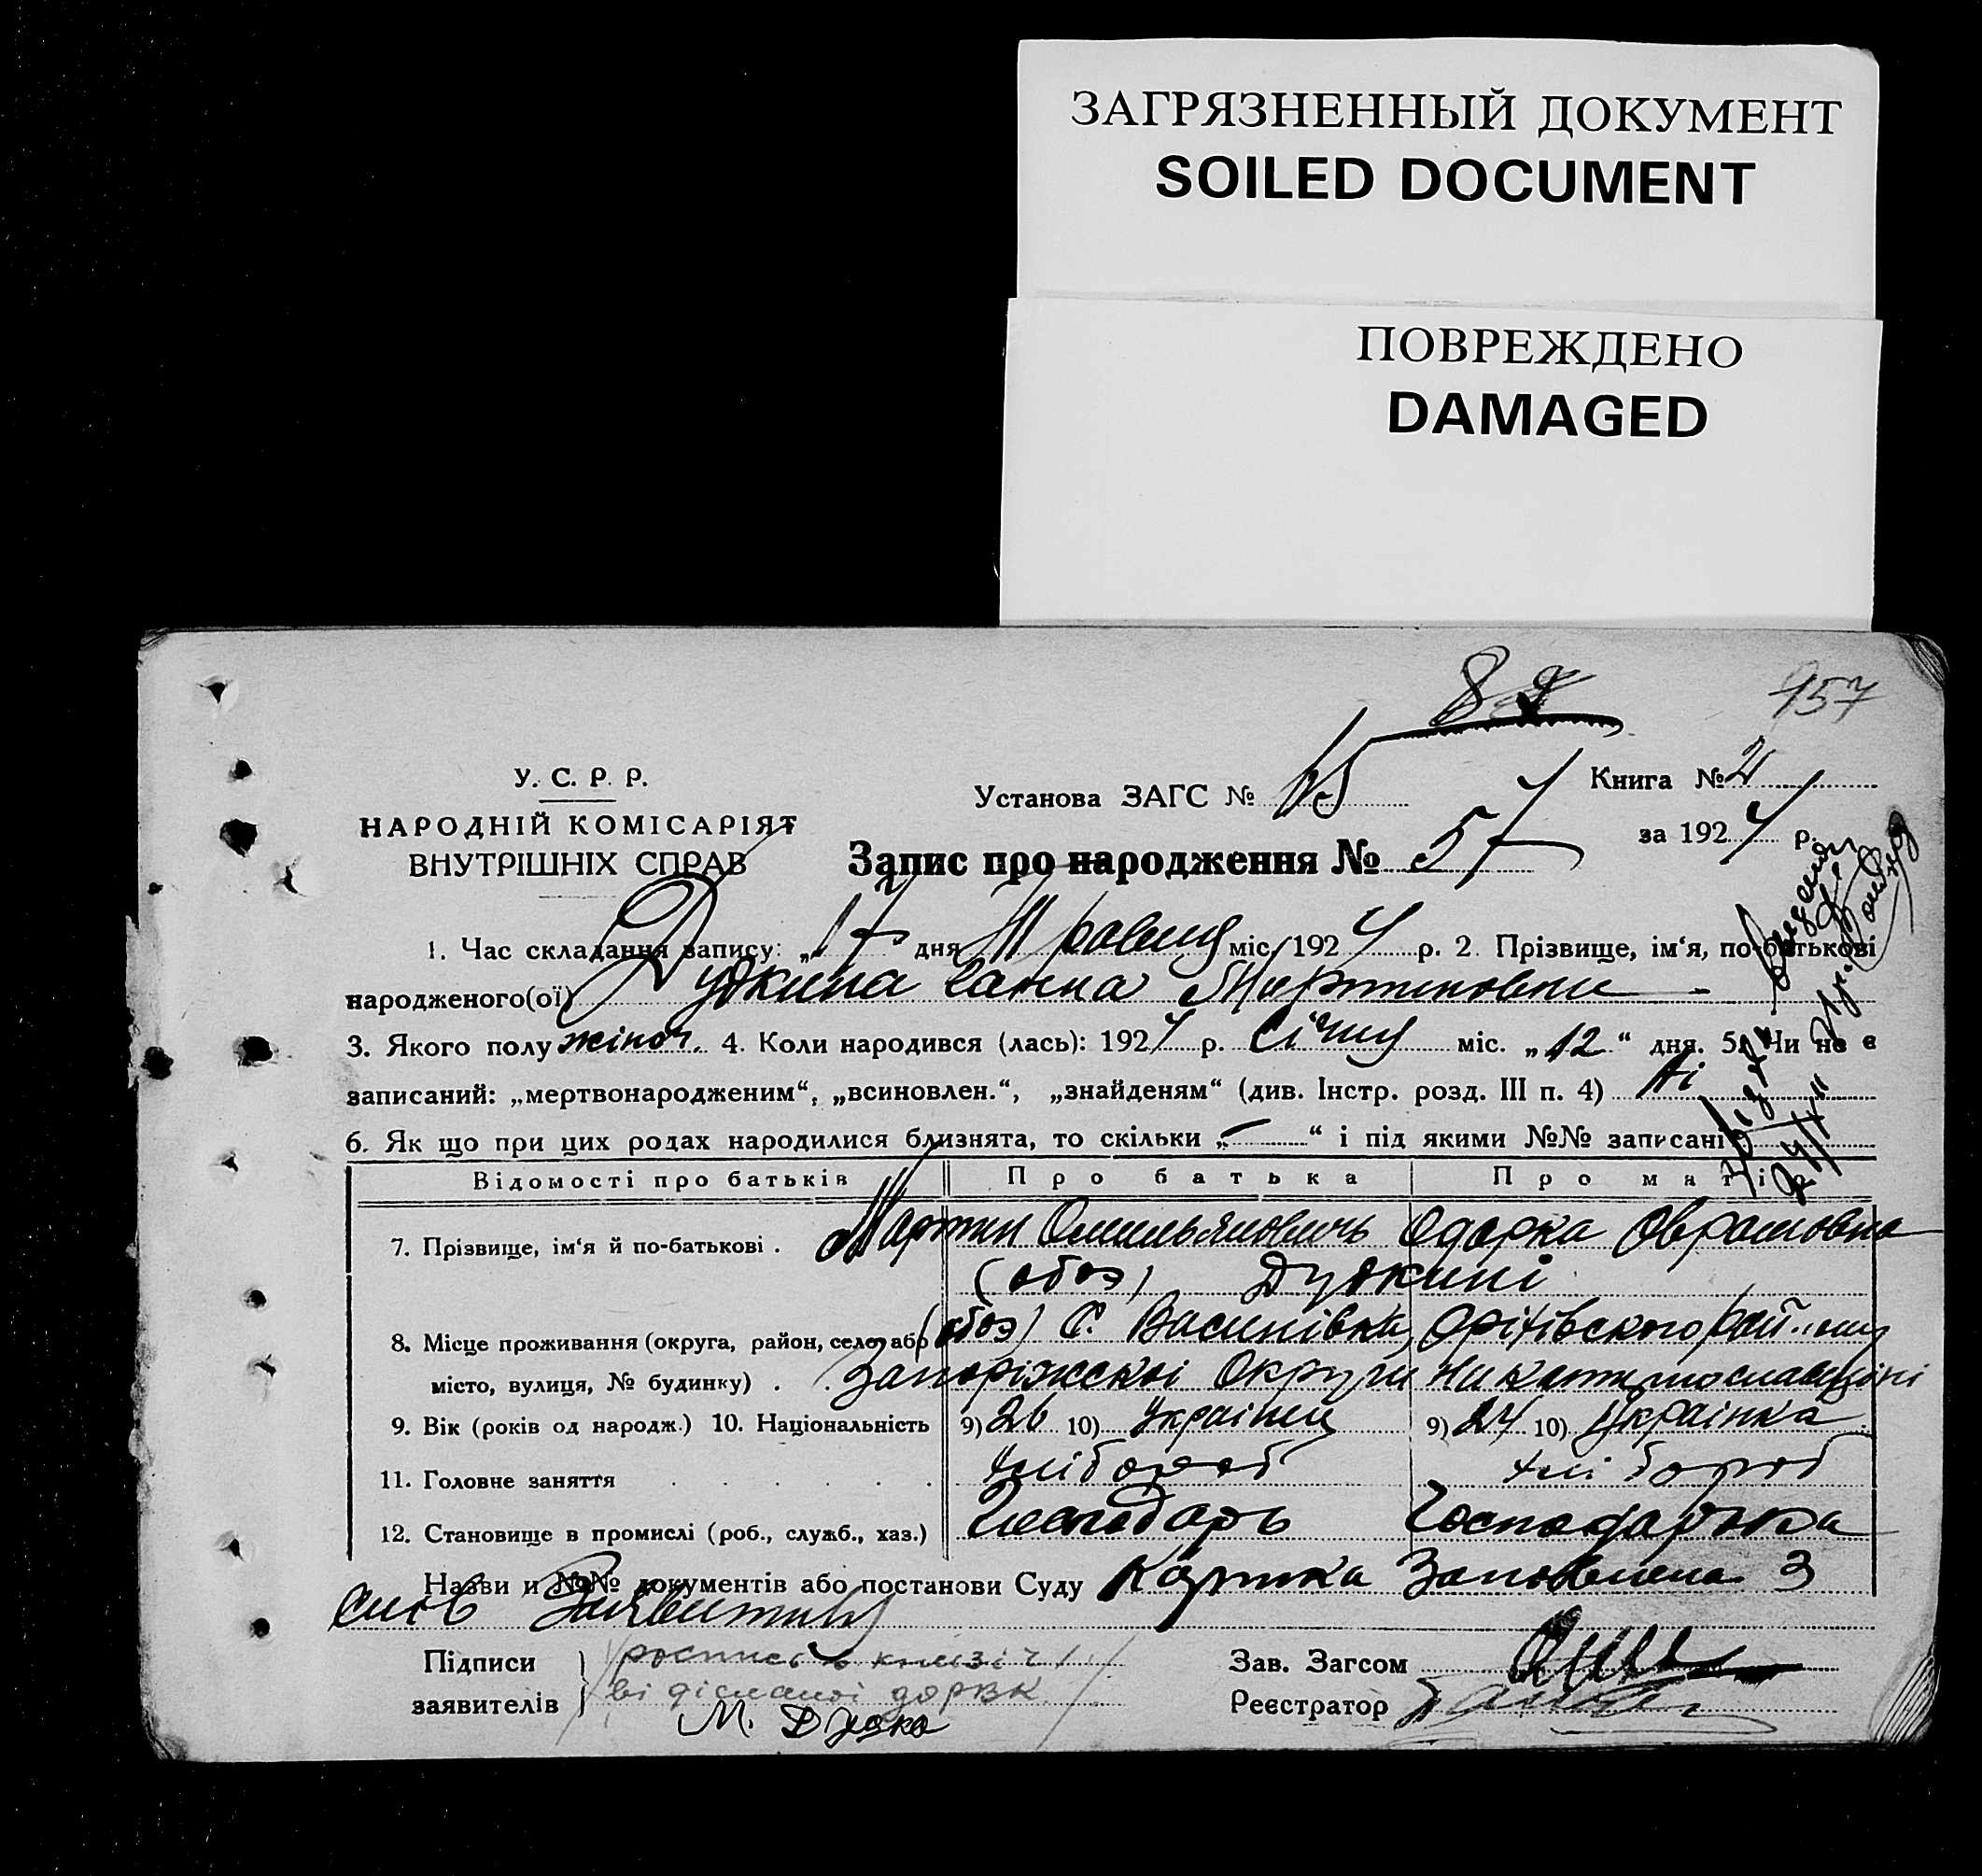 ЗАГРЯЗНЕННЫЙ ДОКУМЕНТ
SOILED DOCUMENT
ПОВРЕЖДЕНО
DAMAGED
957
У. С. Р. Р.
НАРОДНІЙ КОМІСАРІЯТ
ВНУТРІШНІХ СПРАВ
Установа ЗАГС №
Книга № 2
за 1924 р.
Запис про народження № 57
1. Час складання запису: „17 дня Травня міс. 1924 р. 2. Прізвище, ім‘я, по-батькові
народженого(ої) Дудкина Ганна Мартиновна
3. Якого полу жіноч. 4. Коли народився (лась): 1924 р. Січня міс. „12“ дня. 5. Чи не є
записаний: „мертвонародженим“, „всиновлен.“, „знайденям“ (див. Інстр. розд. III п. 4) Ні
6. Як що при цих родах народилися близнята, то скільки „—“ і під якими №№ записані
Відомості про батьків Про батька Про маті
7. Прізвище, ім‘я й по-батькові . Мартин Омельянович Одарка Оврамовна
(обоє) Дудкині
8. Місце проживання (округа, район, село або (обоє) С. Василівка, Оріхівського
місто, вулиця, № будинку) . Запоріжскоі Округи на Катеринославщині
9. Вік (років од народж.) 10. Національність 9) 26 10) Украінец 9) 24 10) Украінка
11. Головне заняття хлібороб хлібороб
12. Становище в промислі (роб., служб., хаз.) Господарь Господарька
Назви и №№ документів або постанови Суду Картка Заповнена З
слов Заявителя
Підписи заявителів роспись в книзі
М. Дудко
Зав. Загсом
Реєстратор